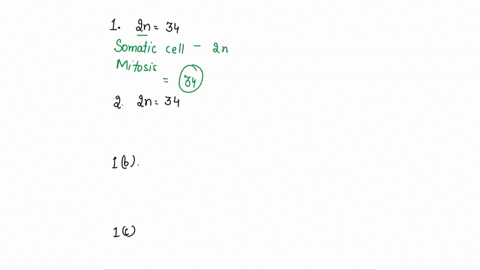 1. 2n = 34
Somatic cell - 2n
Mitosis
= 34
2. 2n = 34
1(b).
1(c)